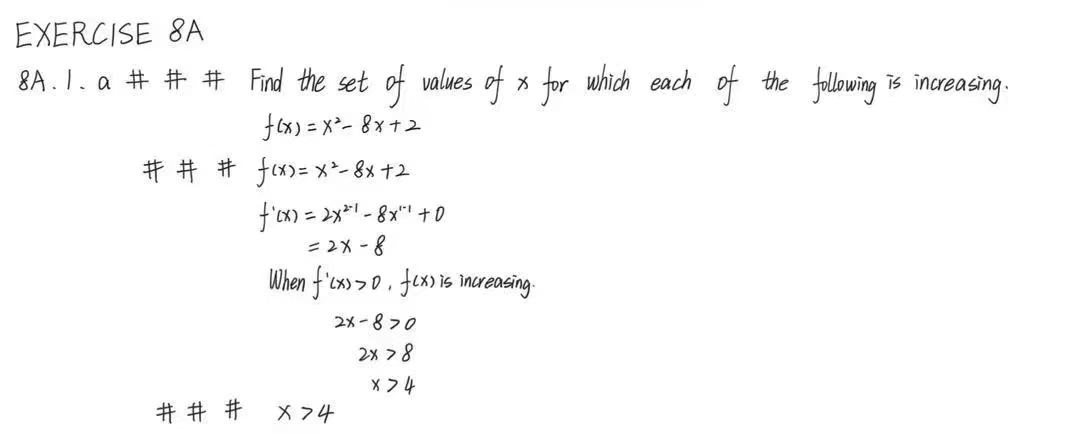 EXERCISE 8A
8A.1. a # # # Find the set of values of x for which each of the following is increasing.
f(x) = x² - 8x + 2
# # # f(x) = x² - 8x + 2
f'(x) = 2x²⁻¹ - 8x¹⁻¹ + 0
= 2x - 8
When f'(x) > 0, f(x) is increasing.
2x - 8 > 0
2x > 8
x > 4
# # # x > 4